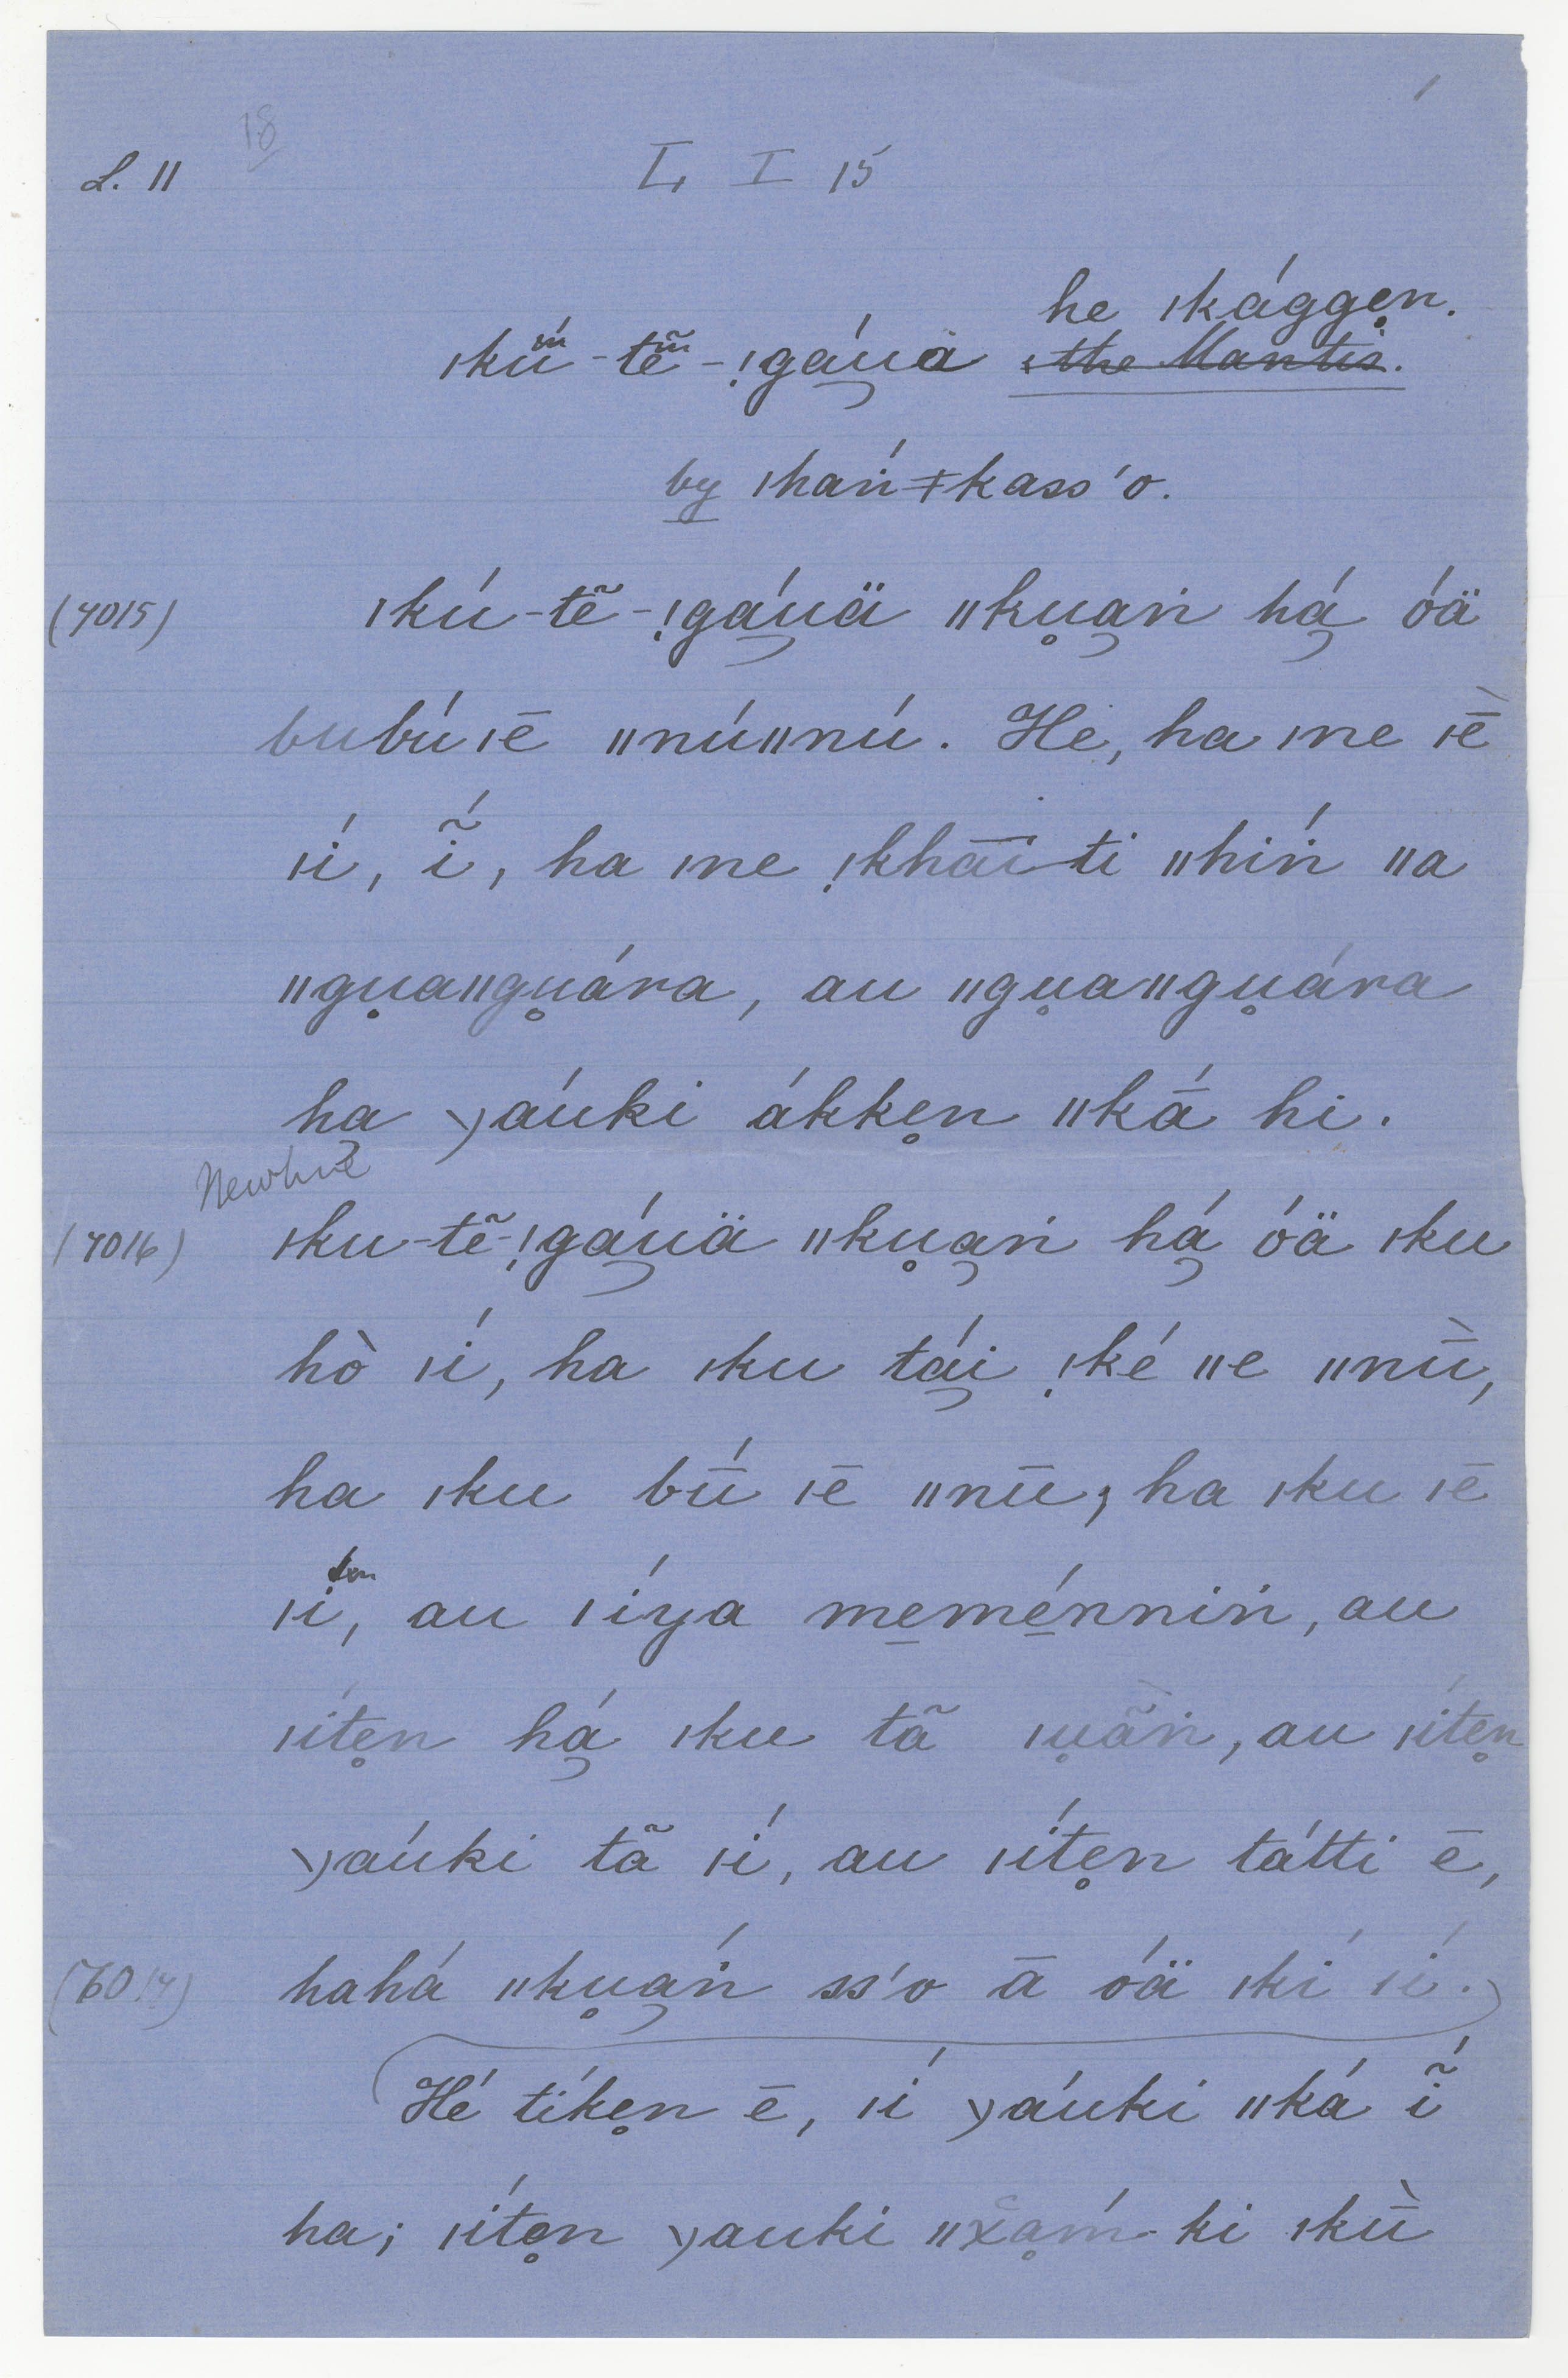 1
18
L. II L I 15
he ǀkággẹn.
ǀkú̃m-tẽ́m-ǃgáu̯ä the Mantis.
by ǀhań ǂkass'o.
(7015) ǀkú-tẽ-ǃgá̰uä ǁkṷa̰ṅ há̰ óä
bubú ǀē ǁnúǁnú. He, ha ǀne ǀḕ
ǀí, ĩ́, ha ǀne ǃkhāī ti ǁhiń ǁa
ǁgṷaǁgṷára, au ǁgṷaǁgṷára
ha̰ ỿáuki ákkẹn ǁkā́ hi.
New line
(7016) ǀku-tẽ-ǃgá̰uä ǁkṷa̰ṅ há̰ óä ǀku
hò ǀí, ha ǀku tá̰i ǃké ǁe ǁnū̀,
ha ǀku bū́ ǀē ǁnū; ha ǀku ǀē
ǀi, au ǀíya m̱em̱énniṅ, au
ǀítẹn há̰ ǀku tã ǀṷã̀ṅ, au ǀítẹn
ỿáuki tã ǀí, au ǀítẹn tátti ē,
(7017) hahá ǁkṷa̰ń ss'o ā óä ǀkí ǀí.
Hé tíkẹn ē, ǀí ỿáuki ǁká ĩ́
ha; ǀítẹn ỿauki ǁx̆ạḿ-ki ǀkū̀